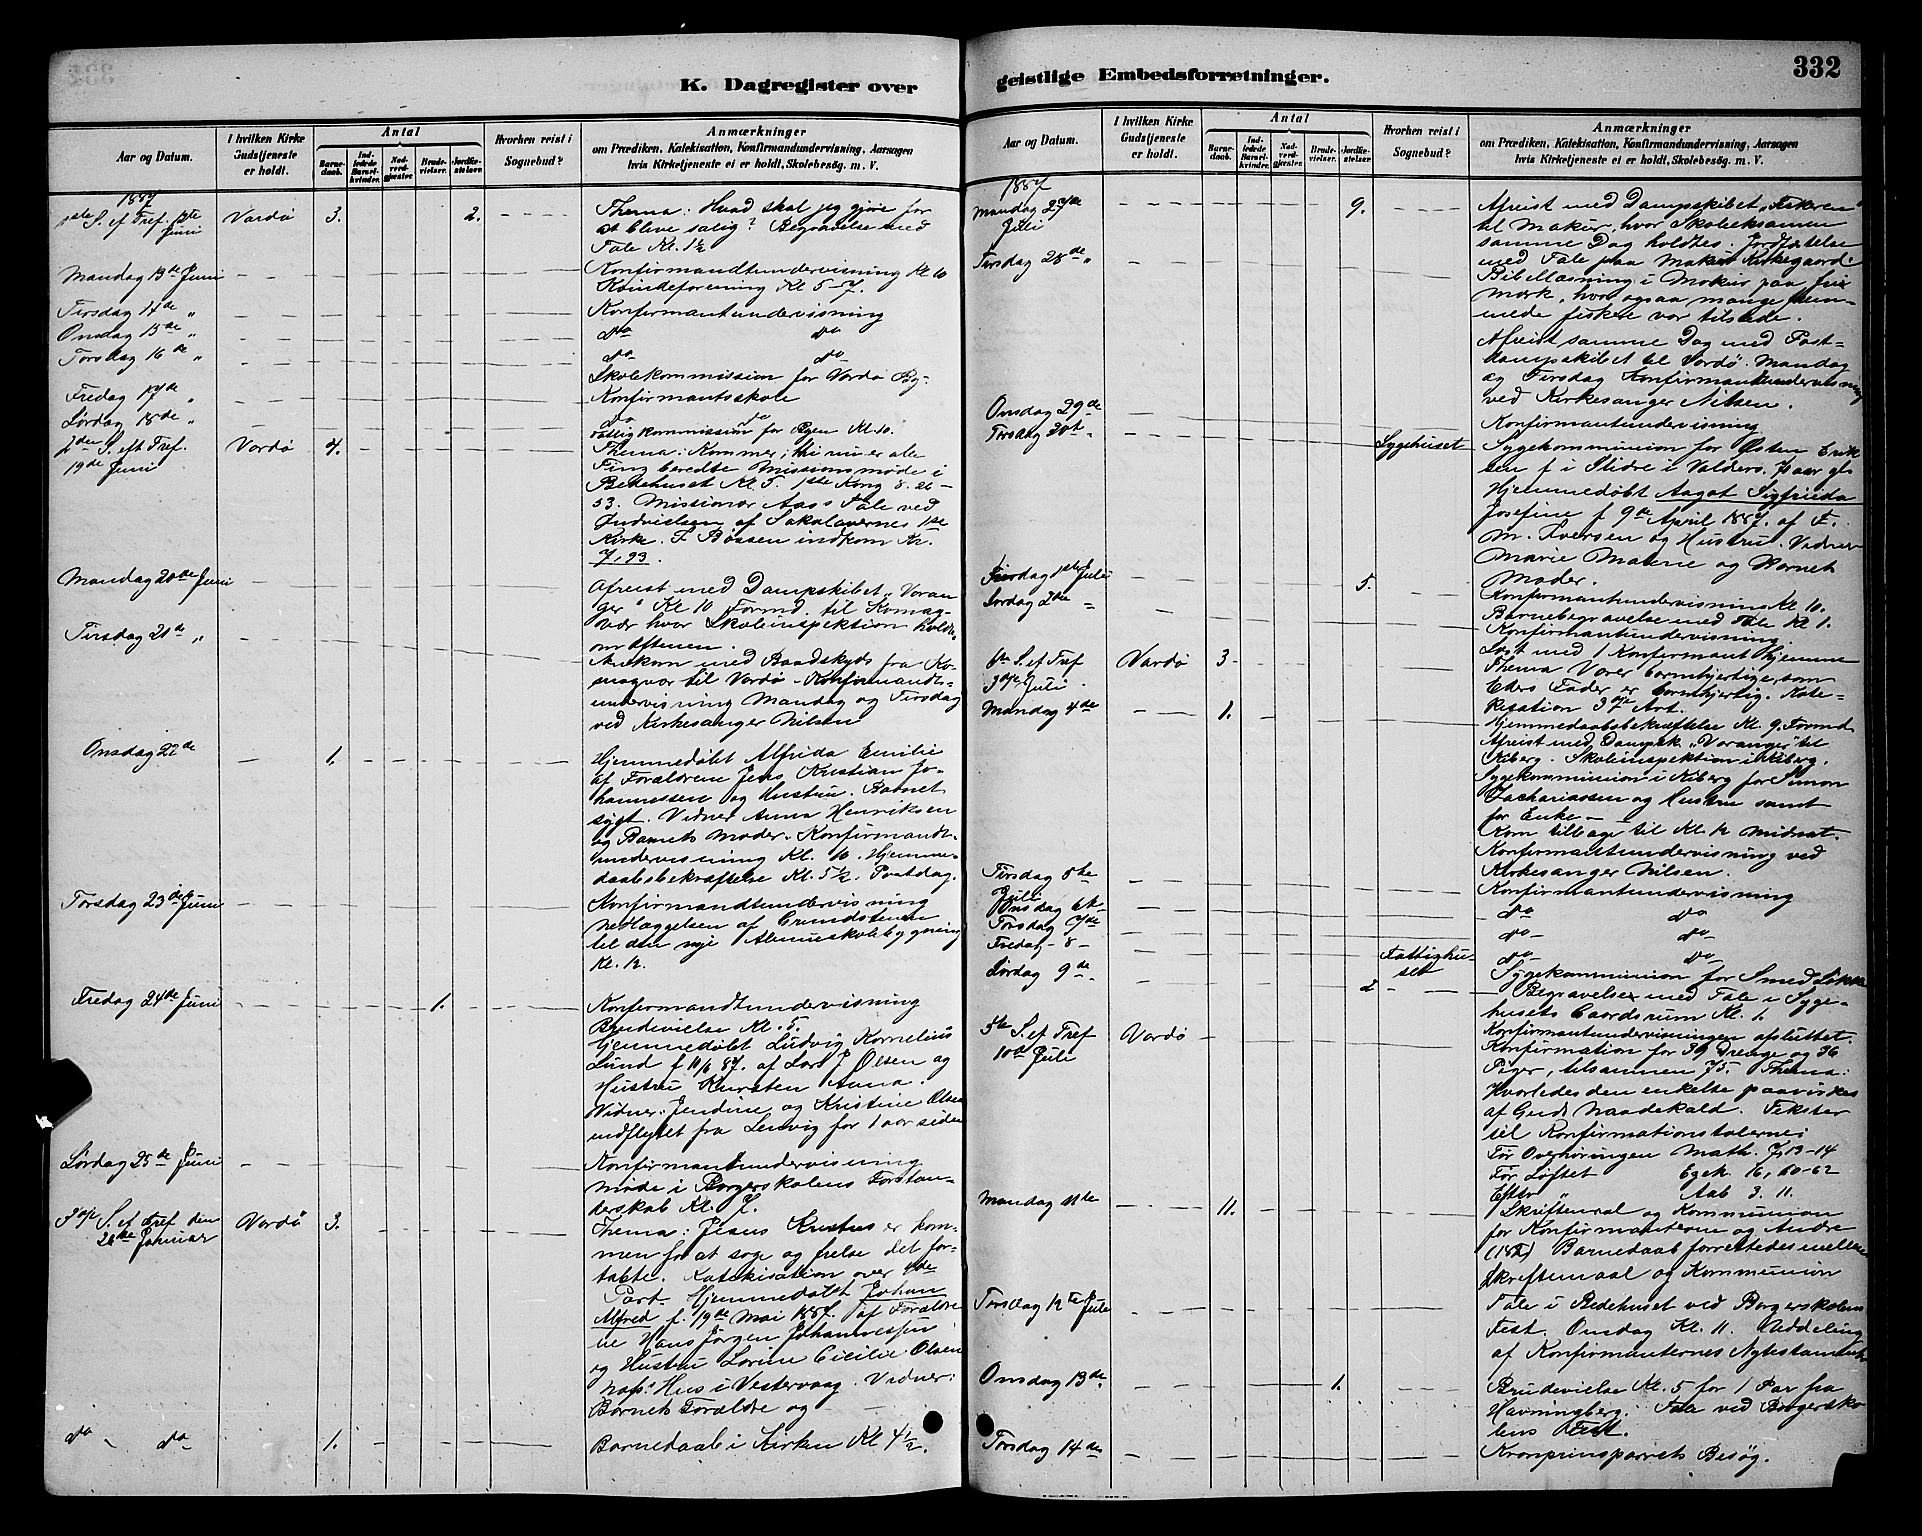 332
K. Dagregister over
geistlige Embedsforretninger.
Aar og Datum.
I hvilken Kirke Gudstjeneste er holdt.
Antal
Barnedaab.
Indledede Barselkvinder.
Nadverdgjester.
Brudevielser.
Jordfæstelser.
Hvorhen reist i Sognebud?
Anmærkninger
om Prædiken, Katekisation, Konfirmandundervisning, Aarsagen
hvis Kirketjeneste ei er holdt, Skolebesög. m. V.
1887
S. ef Tref. Juni Vardø 3. 2. Thema: Hvad skal jeg gjøre for
at blive salig? Begravelse med
Tale Kl. 1½
Mandag 13de Juni Konfirmandtundervisning Kl 10
Kvindeforening Kl 5-7.
Tirsdag 14de " Konfirmantundervisning
Onsdag 15de " do do
Torsdag 16de " do do
Skolekommission for Vardø By.
Fredag 17de " Konfirmantsskole
Lørdag 18de " do do
Fattigkommission for Byen Kl. 10.
2den S. eft Tref. Vardø 4. Thema: Kommer, thi nu er alle
19de Juni Ting beredte Missionsmøde i
Bedehuset Kl. 5. 1ste Kong 8. 26-
53. Missionær Aas's Tale ved
Indvielsen af Sakalavernes 1ste
Kirke. I Bøssen indkom Kr.
7,93.
Mandag 20de Juni Afreist med Dampskibet "Varan
ger" Kl 10 Formd. til Komag-
vær hvor Skoleinspektion holdtes
om Aftenen.
Tirsdag 21de " Ankom med Baadskyds fra Ko-
magvær til Vardø - Konfirmandt-
undervisning Mandag og Tirsdag
ved Kirkesanger Nilsen
Onsdag 22de 1. Hjemmedøbt Alfrida Emilie
af Forældrene Jens Kristian Jo-
hannessen og Hustru. Barnet
sygt. Vidner Anna Henriksen
og Barnets Moder. Konfirmandt-
undervisning Kl. 10. Hjemme-
daabsbekræftelse Kl. 5½. Postdag.
Torsdag 23de Juni Konfirmandtundervisning
Nedlæggelsen af Grundstenen
til den nye Almueskolebygning
Kl. 12.
Fredag 24de Juni 1. Konfirmandtundervisning
Brudevielse Kl. 5.
Hjemmedøbt Ludvig Kornelius
Lund f 11/6 87. af Lars J Olsen og
Hustru Kirsten Anna.
Vidner: Jendine og Kristine Olsen
indflyttet fra Lenvig for 1 aar siden
Lørdag 25de Juni Konfirmantundervisning
Møde i Borgerskolens Forstan-
derskab Kl. 7.
3die S. ef Tref den Vardø 3. Thema: Jesus Kristus er kom-
26de Januar men for at søge og frelse det for-
tabte. Katekisation over 4de
Part. Hjemmedøbt Johan
Alfred f. 19de Mai 1887. af Forældre
ne Hans Jørgen Johannessen
og Hustru Lorine Cicilie Olsen
Hus i Vestervaag. Vidner:
Barnets Forældre og -
do - do 1. Barnedaab i Kirken Kl 4½.
Aar og Datum.
I hvilken Kirke Gudstjeneste er holdt.
Antal
Barnedaab.
Indledede Barselkvinder.
Nadverdgjester.
Brudevielser.
Jordfæstelser.
Hvorhen reist i Sognebud?
Anmærkninger
om Prædiken, Katekisation, Konfirmandundervisning, Aarsagen
hvis Kirketjeneste ei er holdt, Skolebesög. m. V.
1887
Mandag 27de 9. Afreist med Dampskibet "Fiskeren"
Juli til Makur, hvor Skoleeksamen
samme Dag holdtes. Jordfæstelse
Tirsdag 28de " med Tale paa Makur Kirkegaard.
Bibellæsning i Makur paa fri
Mark, hvor ogsaa mange frem-
mede fiskere var tilstede.
Afreist samme Dag med Post-
dampskibet til Vardø. Mandag
og Tirsdag Konfirmantundervisning
ved Kirkesanger Nilsen.
Onsdag 29de Konfirmantundervisning
Torsdag 30te Sygehuset Sygekommunion for Østen Erik
sen f i Slidre i Valders. gl
Hjemmedøbt Aagot Sigfrida
Josefine f 9de April 1887. af F.
M. Iversen og Hustru. Vidner
Marie Malene og Barnets
Moder.
Fredag 1ste Juli 5. Konfirmantundervisning Kl. 10.
Barnebegravelse med Tale Kl 1.
Lørdag 2de Konfirmantundervisning.
Læst med 1 Konfirmant hjemme
S. ef Tref Vardø 3 Thema Værer barmhjertige, som
3die Juli Eders Fader er barmhjertig. Kate-
kisation 3die Art.
Mandag 4de 1. Hjemmedaabsbekræftelse Kl. 9 Formd.
Afreist med Dampsk. "Varanger" til
Kiberg. Skoleinspektion i Kiberg.
Sygekommunion i Kiberg for Simon
Zachariassen og Hustru samt
for Enke -
Kom tilbage til Kl. 12 Midnat.
Konfirmantundervisning ved
Kirkesanger Nilsen.
Tirsdag 5te Juli Konfirmantundervisning
Onsdag 6te do do
Torsdag 7de do do
Fredag - 8 - Fattighuset do do
Sygekommunion for Smed
Lørdag 9de 2 Begravelse med Tale i Syge-
husets Gaardsrum Kl. 1.
Konfirmantundervisningen afsluttet.
5te S. ef Tref Vardø Konfirmation for 39 Drenge og 36
10de Juli Piger, tilsammen 75. Thema:
Hvorledes den enkelte paavirkes
af Guds Naadekald. Tekster
til Konfirmationstalerne:
Før Overhøringen Math. 7, 13-14
Før Løftet Ezek. 16, 60-62
Efter Aab 3. 11.
Mandag 11te 11. Skriftemaal og Kommunion
for Konfirmanterne og Andre
Barnedaab forrettedes mellem
Skriftemaal og Kommunion
Torsdag 12te Juli Tale i Bedehuset ved Borgerskolens
Fest. Onsdag Kl. 11. Uddeling
af Konfirmanternes Nytestamenter
Onsdag 13de 1. Brudevielse Kl. 5 for 1 Par fra
Havningberg. Tale ved Borgersko
lens Fest.
Torsdag 14de Kronprinsparrets Besøg.